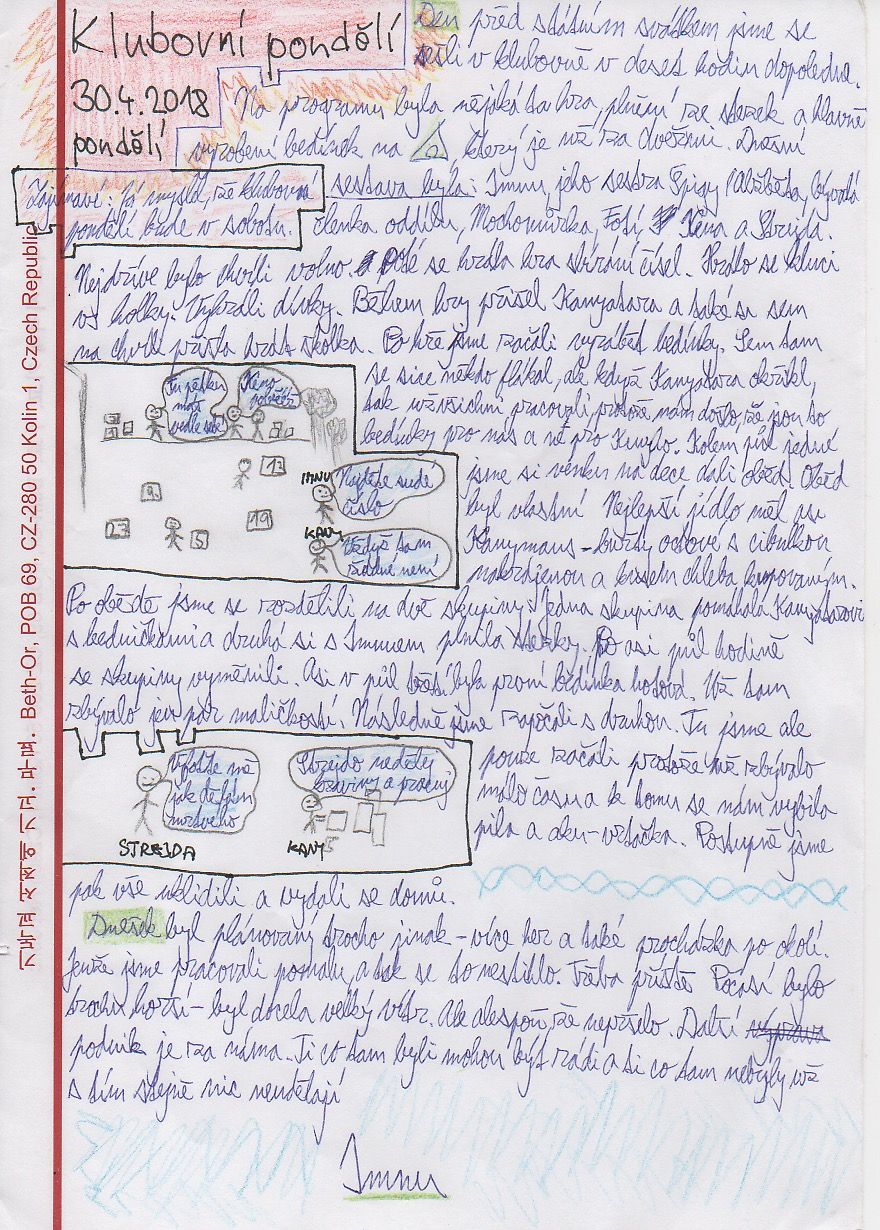 Klubovní pondělí
30.4.2018
pondělí
Den před státním svátkem jsme se
sešli v klubovně v deset hodin dopoledne.
Na programu byla nějaká ta hra, plnění ze stezek a hlavně
vyrobení bedínek na , který je už za dveřmi. Dnešní
Zajímavé: Já myslel, že klubovní
pondělí bude v sobotu.
sestava byla: Immu, jeho sestra Alžběta, bývalá
členka oddílu, Mochomůrka, Fotí, Kéna a Strejda.
Nejdříve bylo chvíli volno. Poté se hrála hra sbírání čísel. Hrálo se kluci
vs holky. Vyhráli dívky. Během hry přišel Kanyatara a také sa sem
na chvíli přišla hrát školka. Po hře jsme začali vyrábět bedínky. Sem tam
se sice někdo flákal, ale když Kanyatara okřikl,
tak už všichni pracovali protože nám došlo, že jsou to
bedínky pro nás a ne pro . Kolem půl jedné
jsme si venku na dece dali oběd. Oběd
byl vlastní Nejlepší jídlo měl asi
Kanymaus - buřty octové s cibulkou
nakrájenou a kusem chleba kupovaným.
Tu pětku
máš
vedle sebe
Kéno
13
9
23
5
19
IMMU
Najděte sudé
číslo
KANY
Vždyť tam
žádné není
Po obědě jsme se rozdělili na dvě skupiny: Jedna skupina pomáhala Kanyatarovi
s bedničkami a druhá si s Immuem plnila stezky. Po asi půl hodině
se skupiny vyměnili. Asi v půl třetí byla první bedínka hotová. Už tam
zbývalo jen pár maličkostí. Následně jsme započali s druhou. Tu jsme ale
pouze začali protože už zbývalo
málo času a k tomu se nám vybila
pila a aku-vrtačka. Postupně jsme
Vyfoťte mě
jak dělám
mrtvého
STREJDA
Strejdo nedělej
kraviny a pracuj
KANY
pak vše uklidili a vydali se domů.
Dnešek byl plánovaný trocho jinak - více her a také procházka po okolí.
Jenže jsme pracovali pomalu, a tak se to nestihlo. Třeba příště Počasí bylo
trochu horší - byl docela velký vítr. Ale alespoň, že nepršelo. Další výprava
podnik je za náma. Ti co tam byli mohou být rádi a ti co tam nebyly už
s tím stejně nic neudělají
Immu
Beth-Or, POB 69, CZ-280 50 Kolín 1, Czech Republic